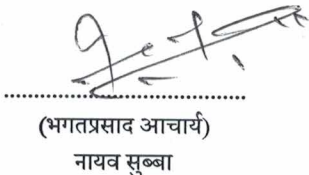 (भगतप्रसाद आचार्य)
नायव सुब्बा